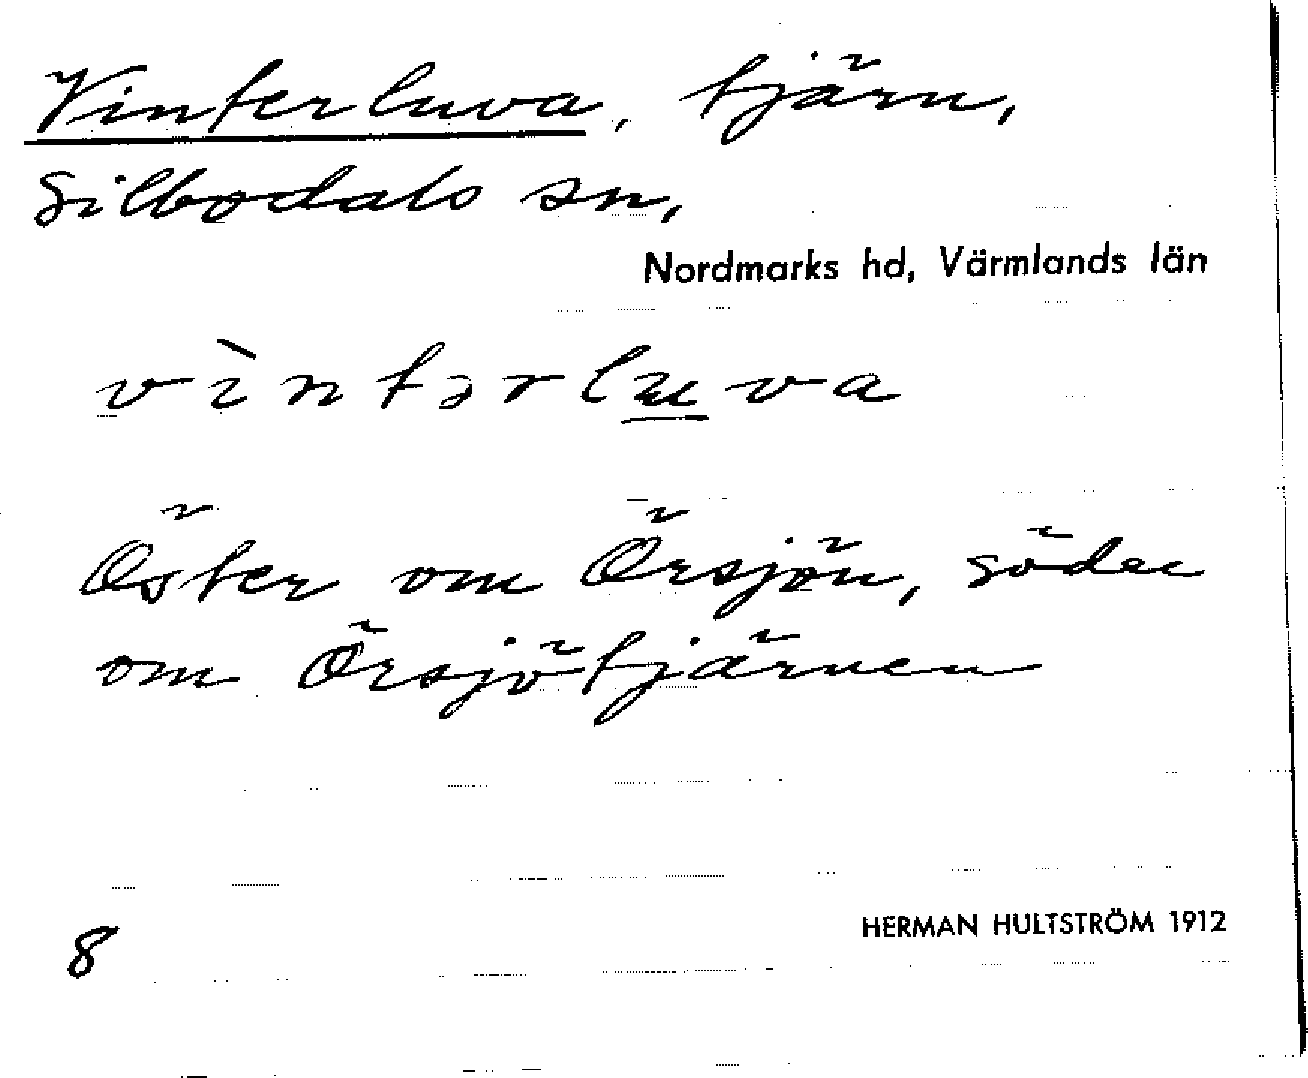 Vinterluva, tjärn,
Silbodals sn,
Nordmarks hd, Värmlands län
vìntərluva
Öster om Örsjön, söder
om Örsjötjärnen
HERMAN HULTSTRÖM 1912
8